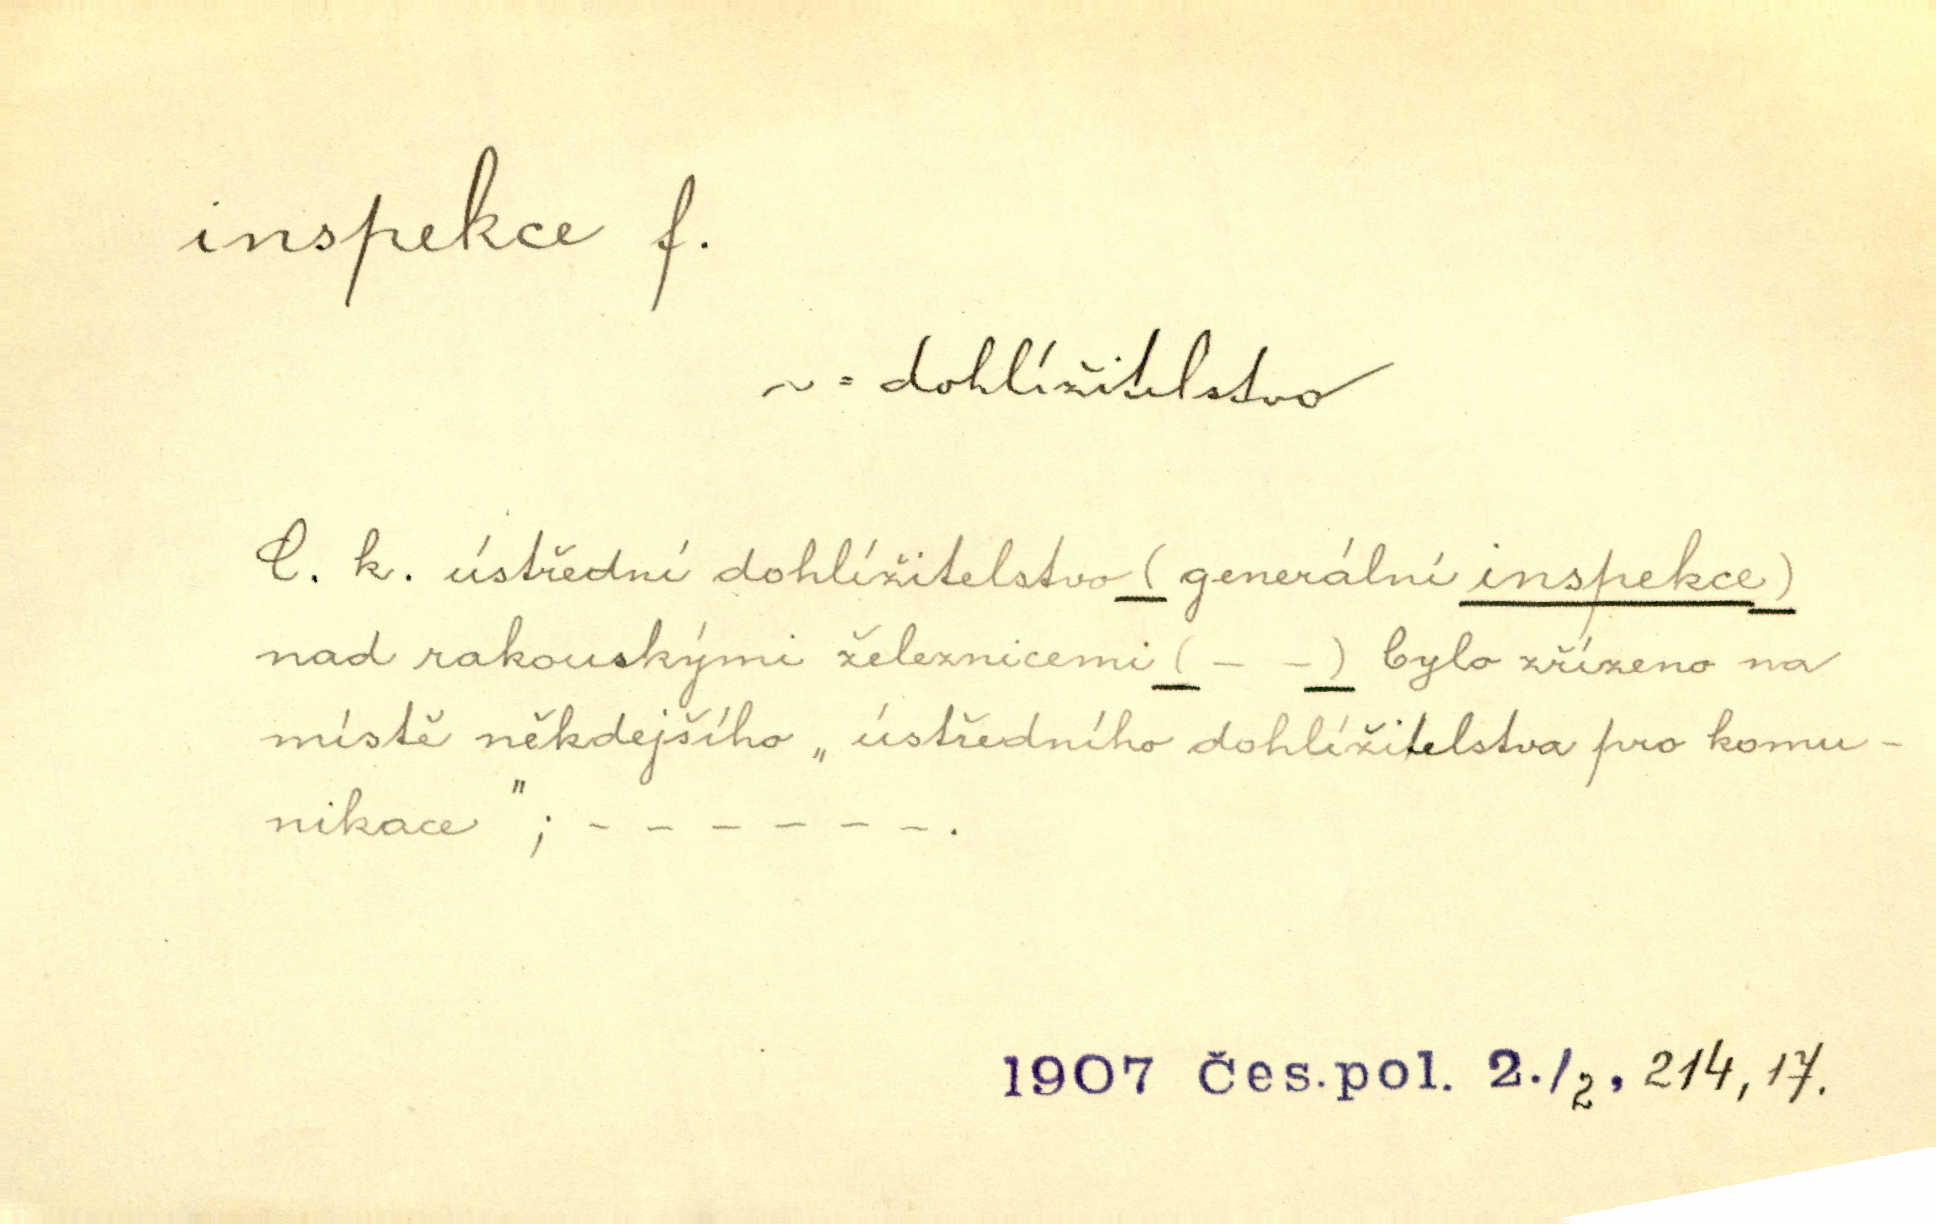 inspekce f.
~ = dohlížitelstvo
C. k. ústřední dohlížitelstvo (generální inspekce)
nad rakouskými železnicemi ( – – ) bylo zřízeno na
místě někdejšího „ústředního dohlížitelstva pro komu-
nikace"; – – – – – – .
1907 Čes.pol. 2./2, 214, 17.